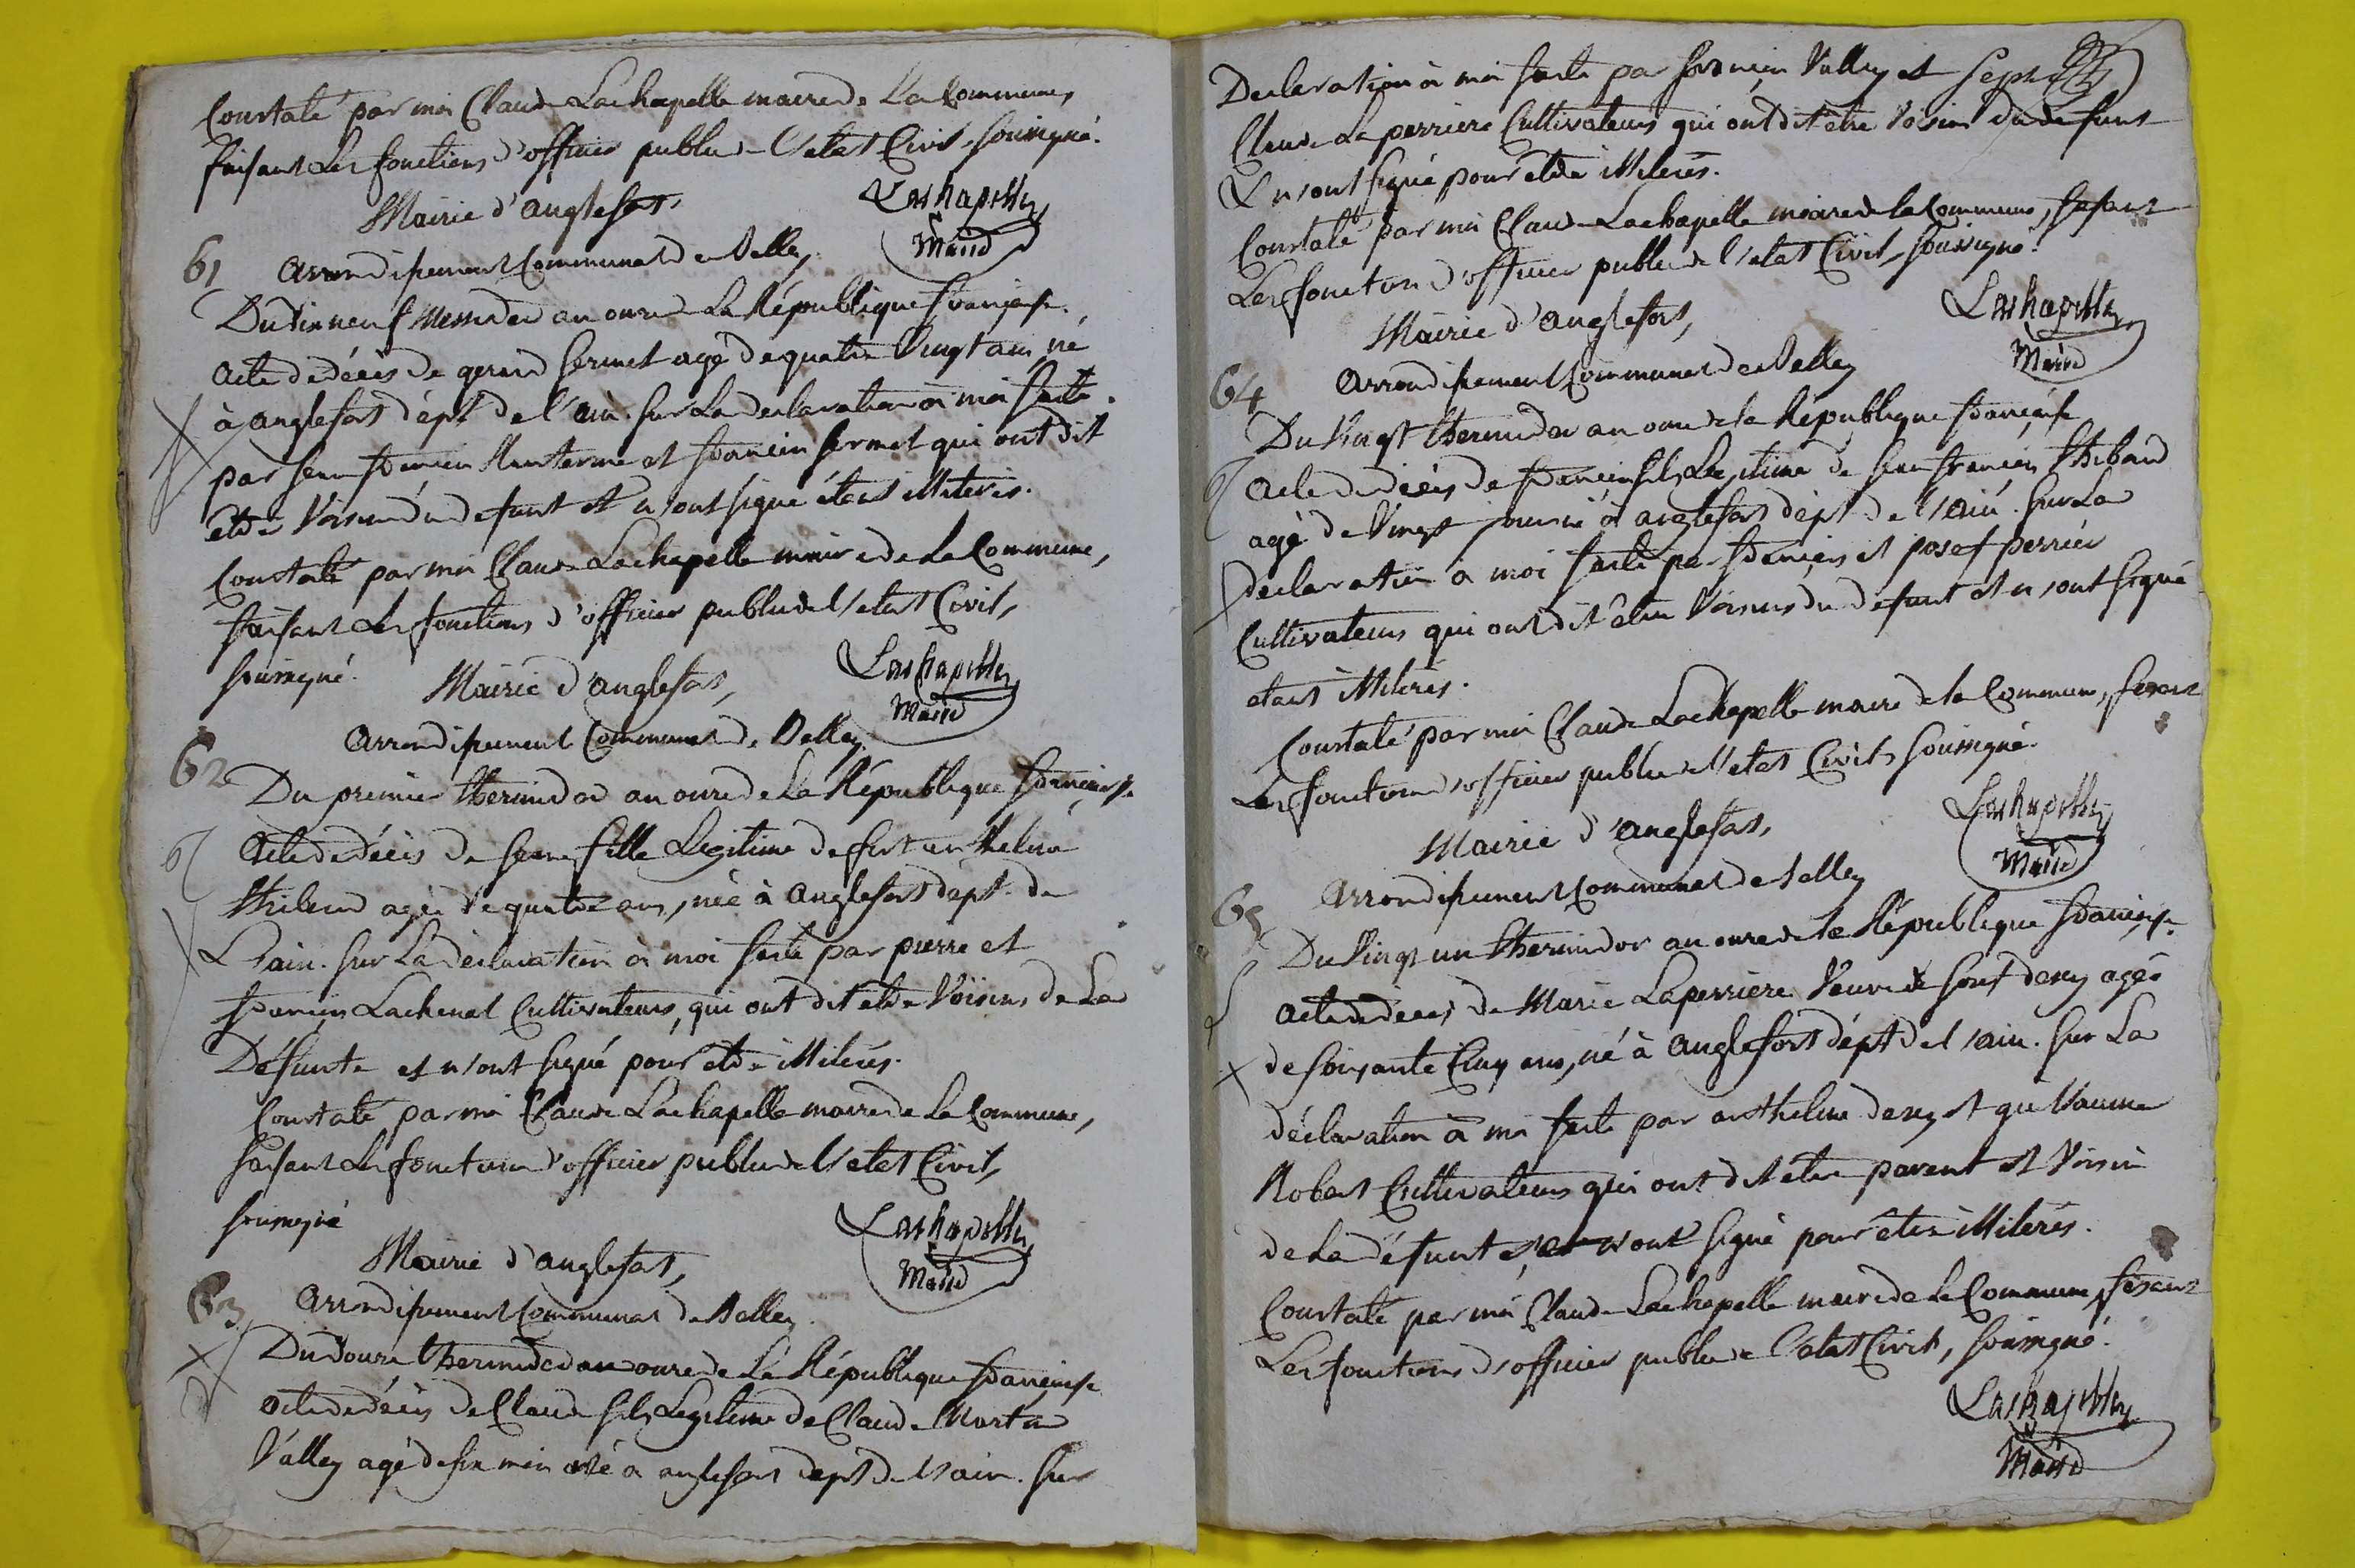 Constaté par moi Claude Lachapelle maire de La Commune,
faisant Les fonctions d'officier public de l'etat Civil, soussigné.
Mairie d'anglefort,
Lachapelle
Maire
61 arrondissement Communal de Belley
Du dix neuf Messidor an onze de La République française.
acte de décès de Sermet agé de quatre Vingt ans, né
à anglefort dépt de l'ain. sur La declaration à moi faite
par françois et françois Sermet qui ont dit
etre Voisin du defunt et n'ont signé étant illiteres.
Constaté par moi Claude Lachapelle maire de La Commune,
faisant Les fonctions d'officier public de l'etat Civil,
soussigné.
Mairie d'anglefort,
Lachapelle
Maire
62 arrondissement Communal de Belley.
Du premier thermidor an onze de La République française
acte de décès de fille Legitime de anthelme
agée de quatre ans, née à anglefort dépt. de
L'ain. sur La déclaration à moi faite par pierre et
françois Lachenal Cultivateurs, qui ont dit etre Voisins de La
Défunte et n'ont signé pour etre illiterés.
Constaté par moi Claude Lachapelle maire de la Commune,
faisant Les fonctions d'officier public de l'etat Civil,
soussigné
Mairie d'anglefort,
Lachapelle
Maire
63 arrondissement Communal de Belley.
Du douze thermidor an onze de La République française
acte de décès de Claude fils Legitime de Claude
Valley agé de six mois né à anglefort dept de l'ain. sur
Declaration à moi faite par françois Valley et
Claude Laperriere Cultivateurs qui ont dit etre Voisins du defunt
et n'ont signé pour etre illiterés.
Constaté par moi Claude Lachapelle maire de la Commune, fesant
Les fonctions d'officier public de l'etat Civil, soussigné.
Mairie d'anglefort,
Lachapelle
Maire
64 arrondissement Communal de Belley
Du Vingt thermidor an onze de la République française
acte de décès de françois fils Legitime de françois Thibaud
agé de Vingt jours né à anglefort dépt de l'ain. sur La
declaration à moi faite par françois et josef perrier
Cultivateurs qui ont dit être Voisins du defunt et n'ont signé
etant illiterés.
Constaté par moi Claude Lachapelle maire de la Commune, fesant
Les fonctions d'officier public de l'etat Civil, soussigné.
Mairie d'anglefort,
Lachapelle
Maire
65 arrondissement Communal de belley
Du Vingt un thermidor an onze de la République française.
acte de décès de Marie Laperriere Veuve de agée
de soixante Cinq ans, né à anglefort dépt de l'ain. sur La
déclaration à moi faite par anthelme et guillaume
Robert Cultivateurs qui ont dit etre parent et Voisin
de La défunte, et n'ont signé pour être illiterés.
Constaté par moi Claude Lachapelle maire de la Commune, fesant
Les fonctions d'officier public de l'etat Civil, soussigné.
Lachapelle
Maire